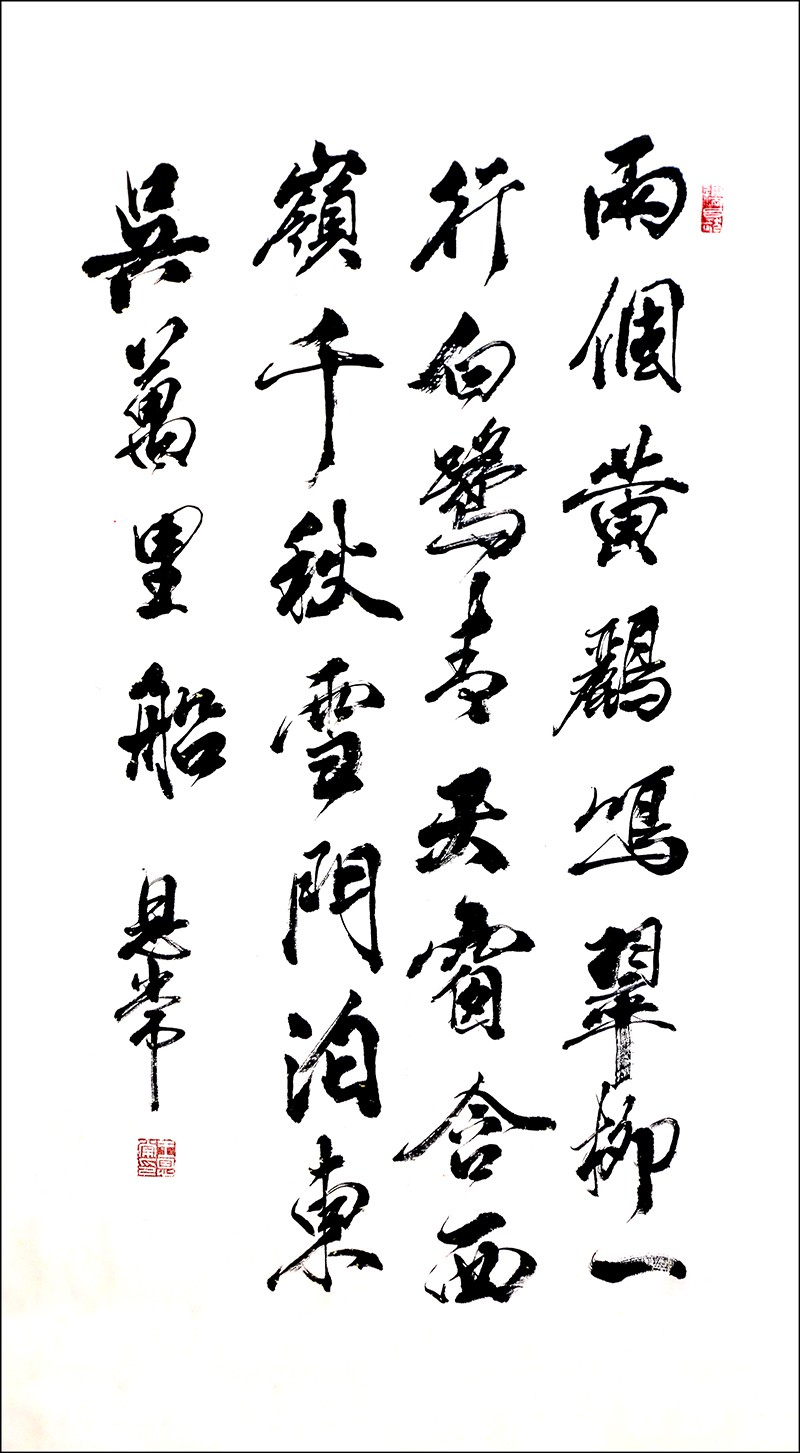 兩個黃鸝鳴翠柳一
行白鷺青天窗含西
嶺千秋雪門泊東
吳萬里船
恩常